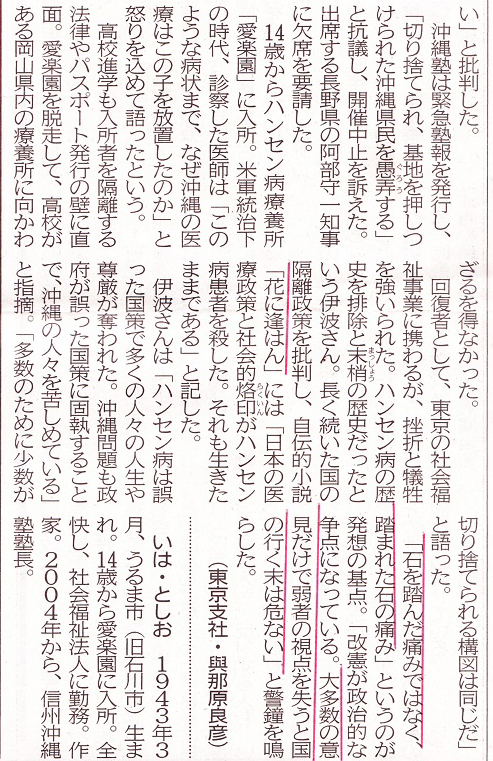 い」と批判した。
　沖縄塾は緊急塾報を発行し、
「切り捨てられ、基地を押しつ
けられた沖縄県民を愚弄する」
ぐろう
と抗議し、開催中止を訴えた。
出席する長野県の阿部守一知事
に欠席を要請した。
　14歳からハンセン病療養所
「愛楽園」に入所。米軍統治下
の時代、診察した医師は「この
ような病状まで、なぜ沖縄の医
療はこの子を放置したのか」と
怒りを込めて語ったという。
　高校進学も入所者を隔離する
法律やパスポート発行の壁に直
面。愛楽園を脱走して、高校が
ある岡山県内の療養所に向かわ
ざるを得なかった。
　回復者として、東京の社会福
祉事業に携わるが、挫折と犠牲
を強いられた。ハンセン病の歴
史を排除と末梢の歴史だったと
まっしょう
いう伊波さん。長く続いた国の
隔離政策を批判し、自伝的小説
「花に逢はん」には「日本の医
療政策と社会的烙印がハンセン
らくいん
病患者を殺した。それも生きた
ままである」と記した。
　伊波さんは「ハンセン病は誤
った国策で多くの人々の人生や
尊厳が奪われた。沖縄問題も政
府が誤った国策に固執すること
で、沖縄の人々を苦しめている」
と指摘。「多数のために少数が
切り捨てられる構図は同じだ」
と語った。
　「石を踏んだ痛みではなく、
踏まれた石の痛み」というのが
発想の基点。「改憲が政治的な
争点になっている。大多数の意
見だけで弱者の視点を失うと国
の行く末は危ない」と警鐘を鳴
らした。
（東京支社・與那原良彦）
　いは・としお　1943年3
月、うるま市（旧石川市）生ま
れ。14歳から愛楽園に入所。全
快し、社会福祉法人に勤務。作
家。2004年から、信州沖縄
塾塾長。